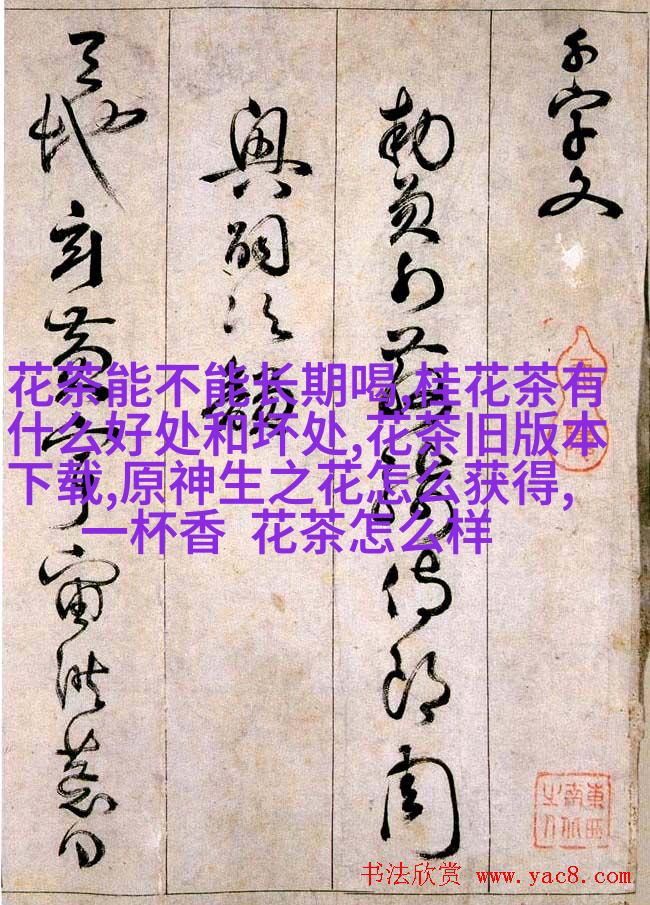 千字文
勅員外散騎侍郎周
興嗣次韻
天地玄黃宇宙洪荒日
花茶能不能长期喝,桂花茶有
什么好处和坏处,花茶旧版本
下载,原神生之花怎么获得,
一杯香 花茶怎么样
東西
南北
之人
书法欣赏 www.yac8.com